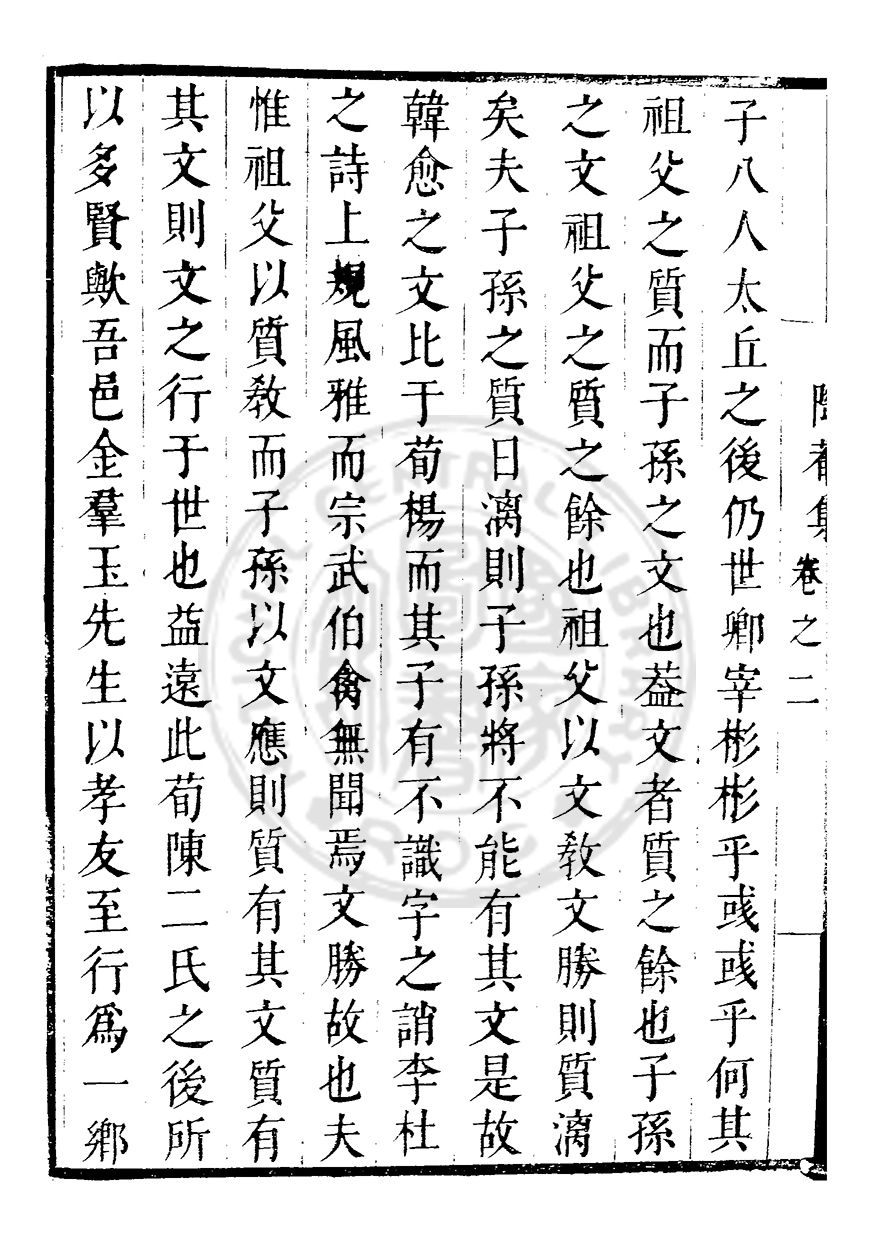 集卷之二
子八人太丘之後仍世卿宰彬彬乎彧彧乎何其
祖父之質而子孫之文也葢文者質之餘也子孫
之文祖父之質之餘也祖父以文敎文勝則質漓
矣夫子孫之質日漓則子孫將不能有其文是故
韓愈之文比于荀楊而其子有不識字之誚李杜
之詩上規風雅而宗武伯禽無聞焉文勝故也夫
惟祖父以質敎而子孫以文應則質有其文質有
其文則文之行于世也益遠此荀陳二氏之後所
以多賢歟吾邑金羣玉先生以孝友至行爲一鄉